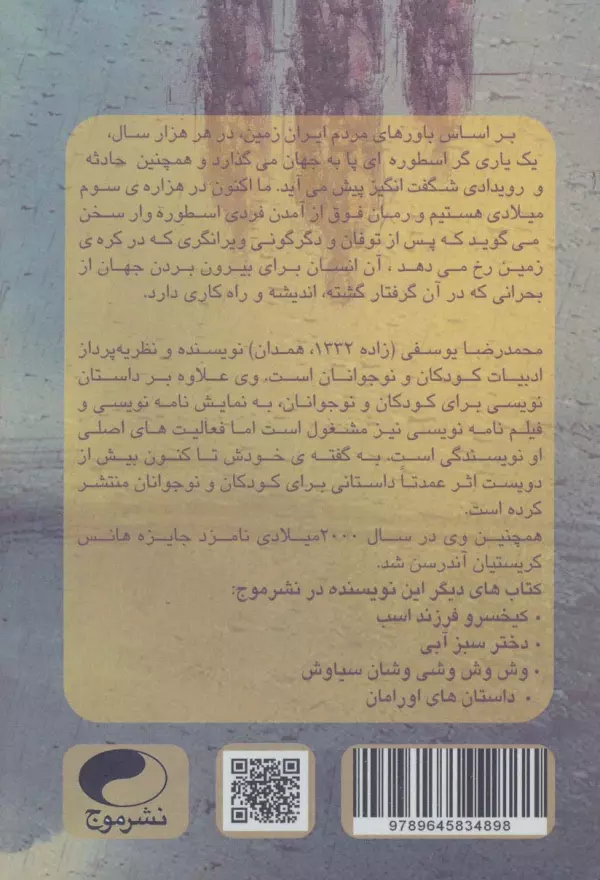 بر اساس باورهای مردم ایران زمین، در هر هزار سال،
یک یاری گر اسطوره ای پا به جهان می گذارد و همچنین حادثه
و رویدادی شگفت انگیز پیش می آید. ما اکنون در هزاره ی سوم
میلادی هستیم و رمان فوق از آمدن فردی اسطوره وار سخن
می گوید که پس از توفان و دگرگونی ویرانگری که در کره ی
زمین رخ می دهد ، آن انسان برای بیرون بردن جهان از
بحرانی که در آن گرفتار گشته، اندیشه و راه کاری دارد.
محمدرضا یوسفی (زاده ۱۳۳۲، همدان) نویسنده و نظریه‌پرداز
ادبیات کودکان و نوجوانان است. وی علاوه بر داستان
نویسی برای کودکان و نوجوانان، به نمایش نامه نویسی و
فیلم نامه نویسی نیز مشغول است اما فعالیت های اصلی
او نویسندگی است. به گفته ی خودش تا کنون بیش از
دویست اثر عمدتا داستانی برای کودکان و نوجوانان منتشر
کرده است.
همچنین وی در سال ۲۰۰۰میلادی نامزد جایزه هانس
کریستیان آندرسن شد.
کتاب های دیگر این نویسنده در نشرموج:
• کیخسرو فرزند اسب
• دختر سبز آبی
• وش وش وشی وشان سیاوش
• داستان های اورامان
نشرموج
9789645834898